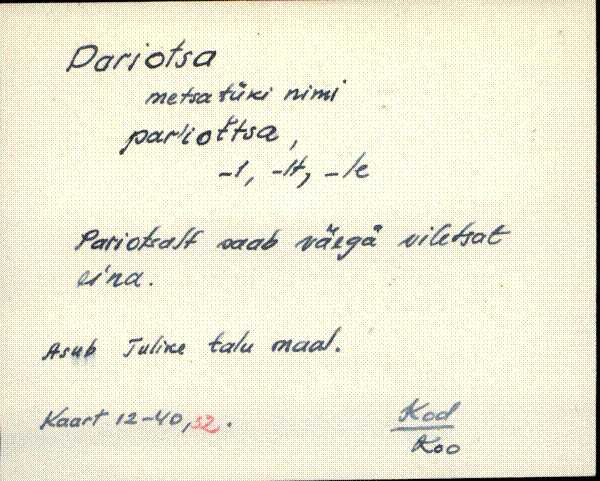 Pariotsa
metsatüki nimi
pariottsa,
-l, -lt, -le
Pariotsalt saab väegä viletsat
eina.
Asub Tulike talu maal.
Kaart 12-40, 52.
Kod
Koo